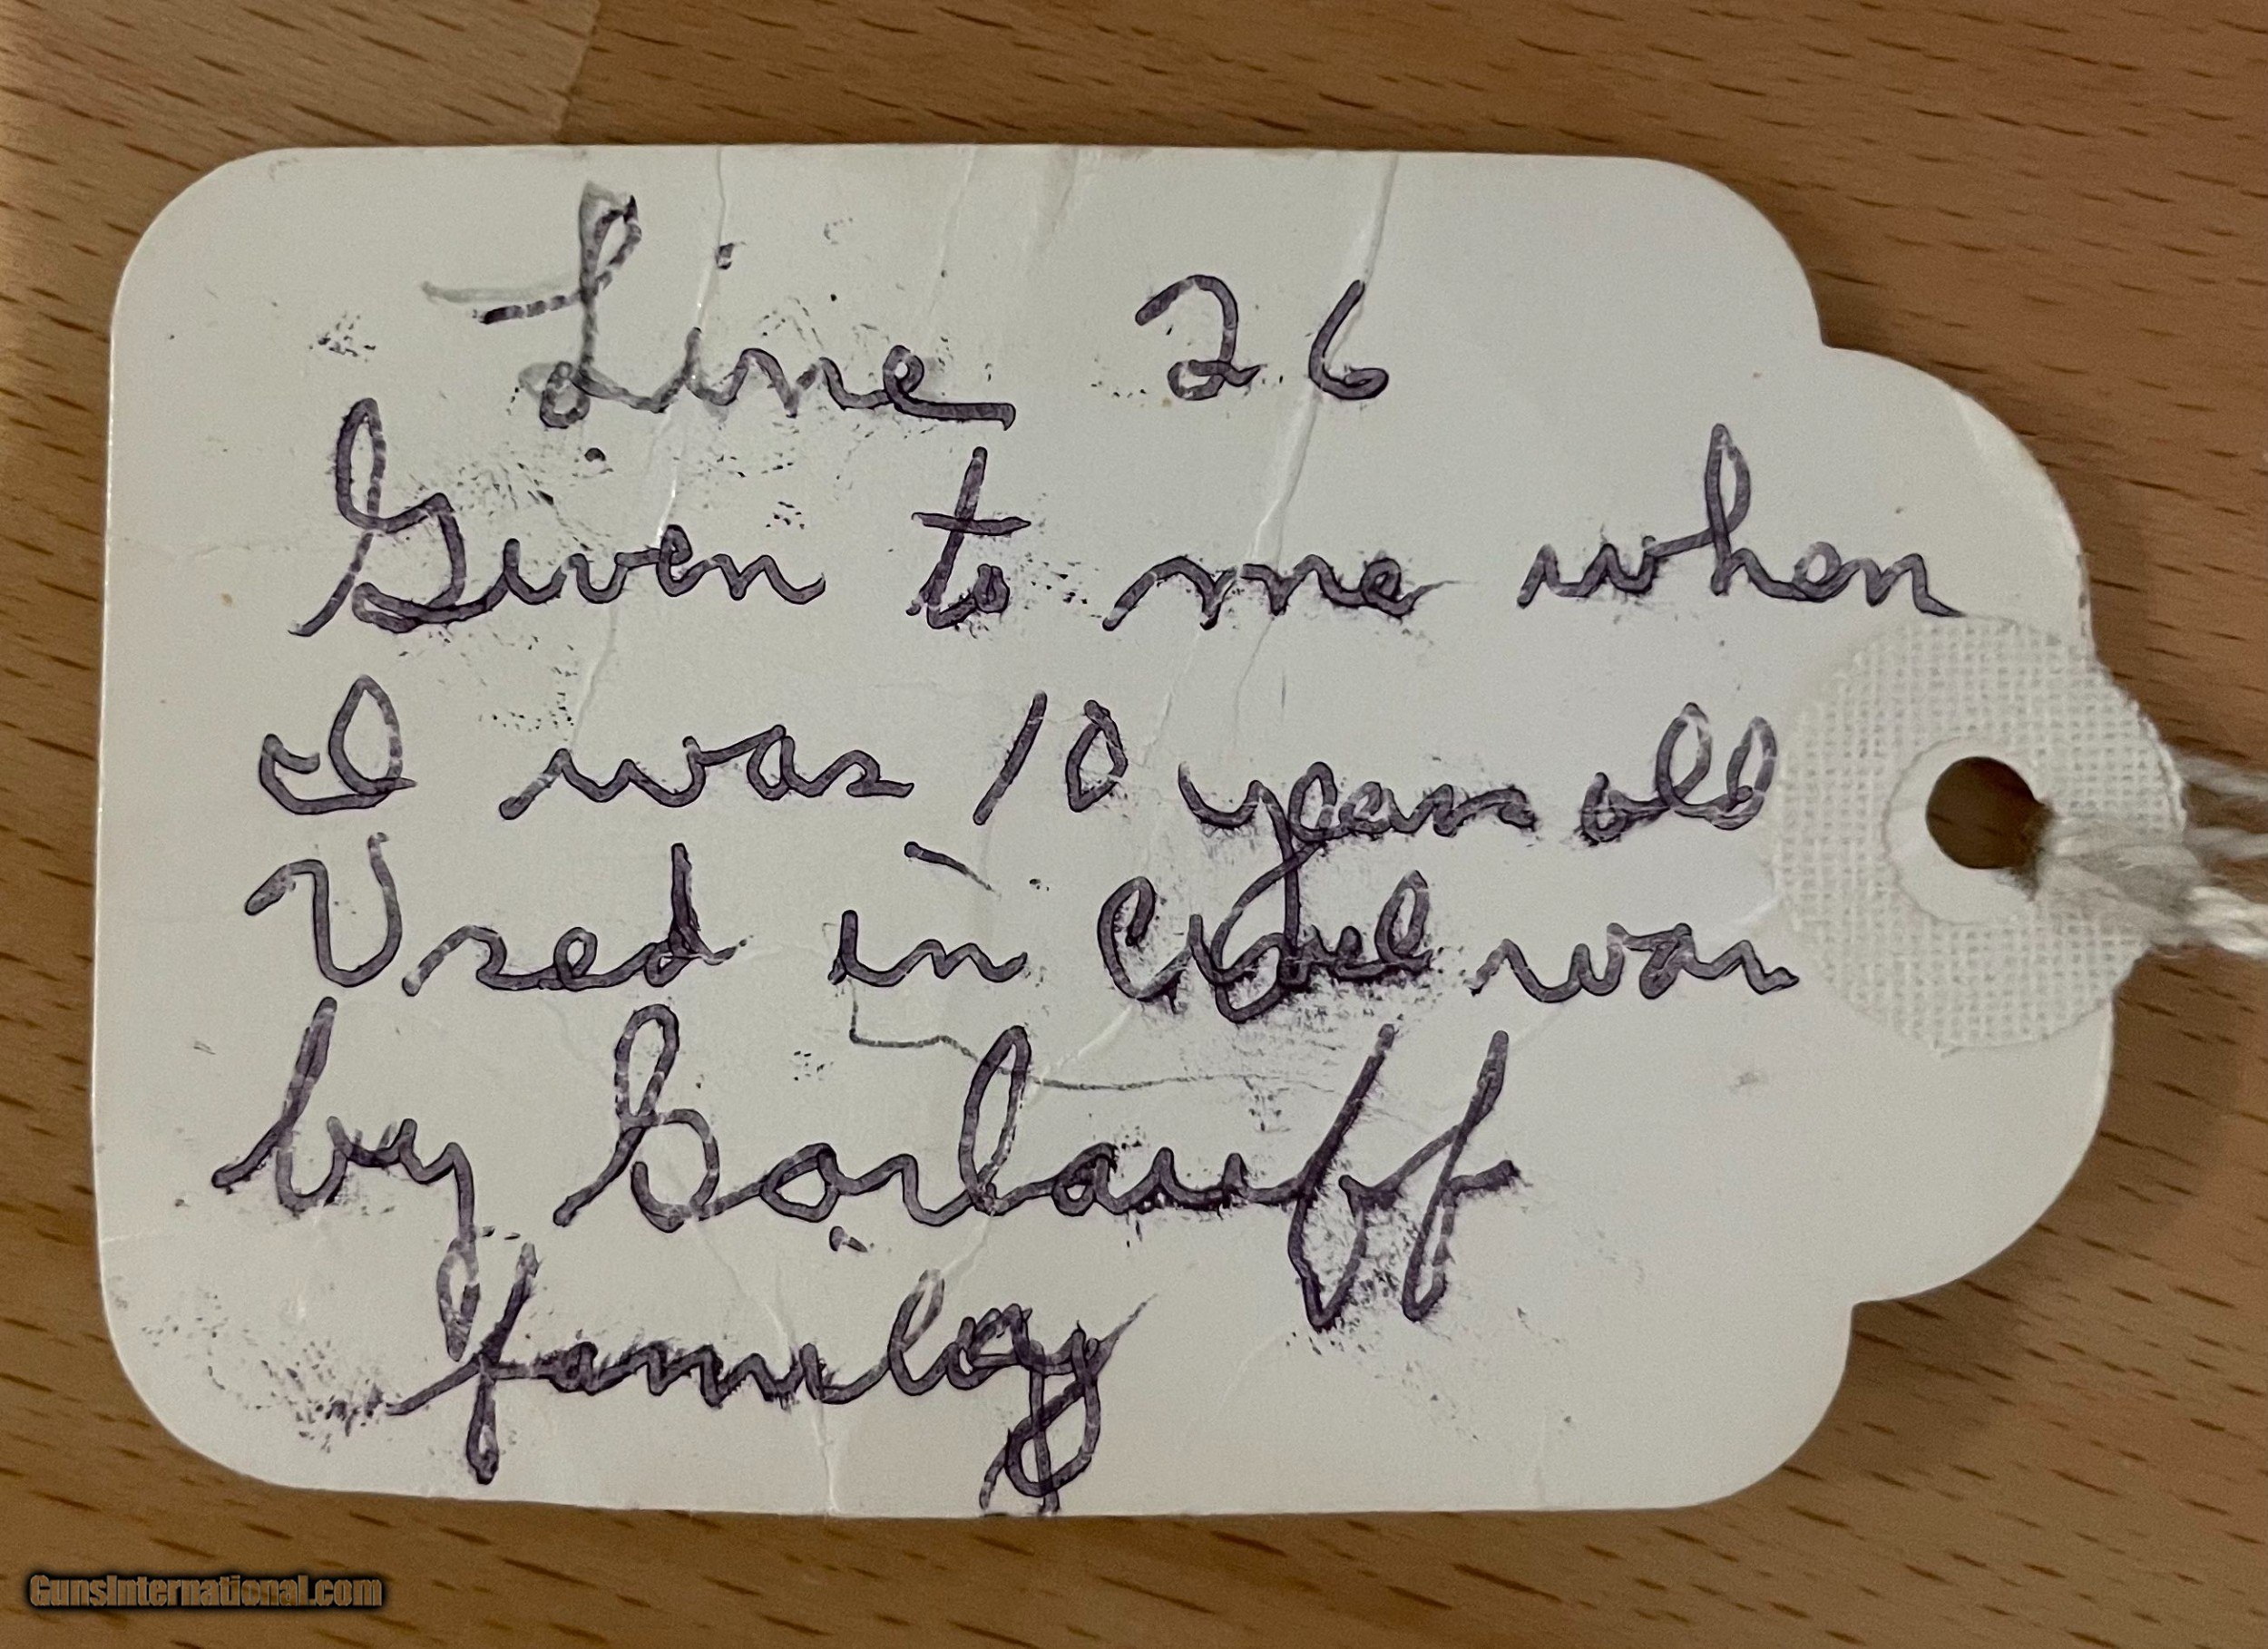 Line 26
Given to me when
I was 10 years old
Used in Civil war
by Sorlauff
family
GunsInternational.com